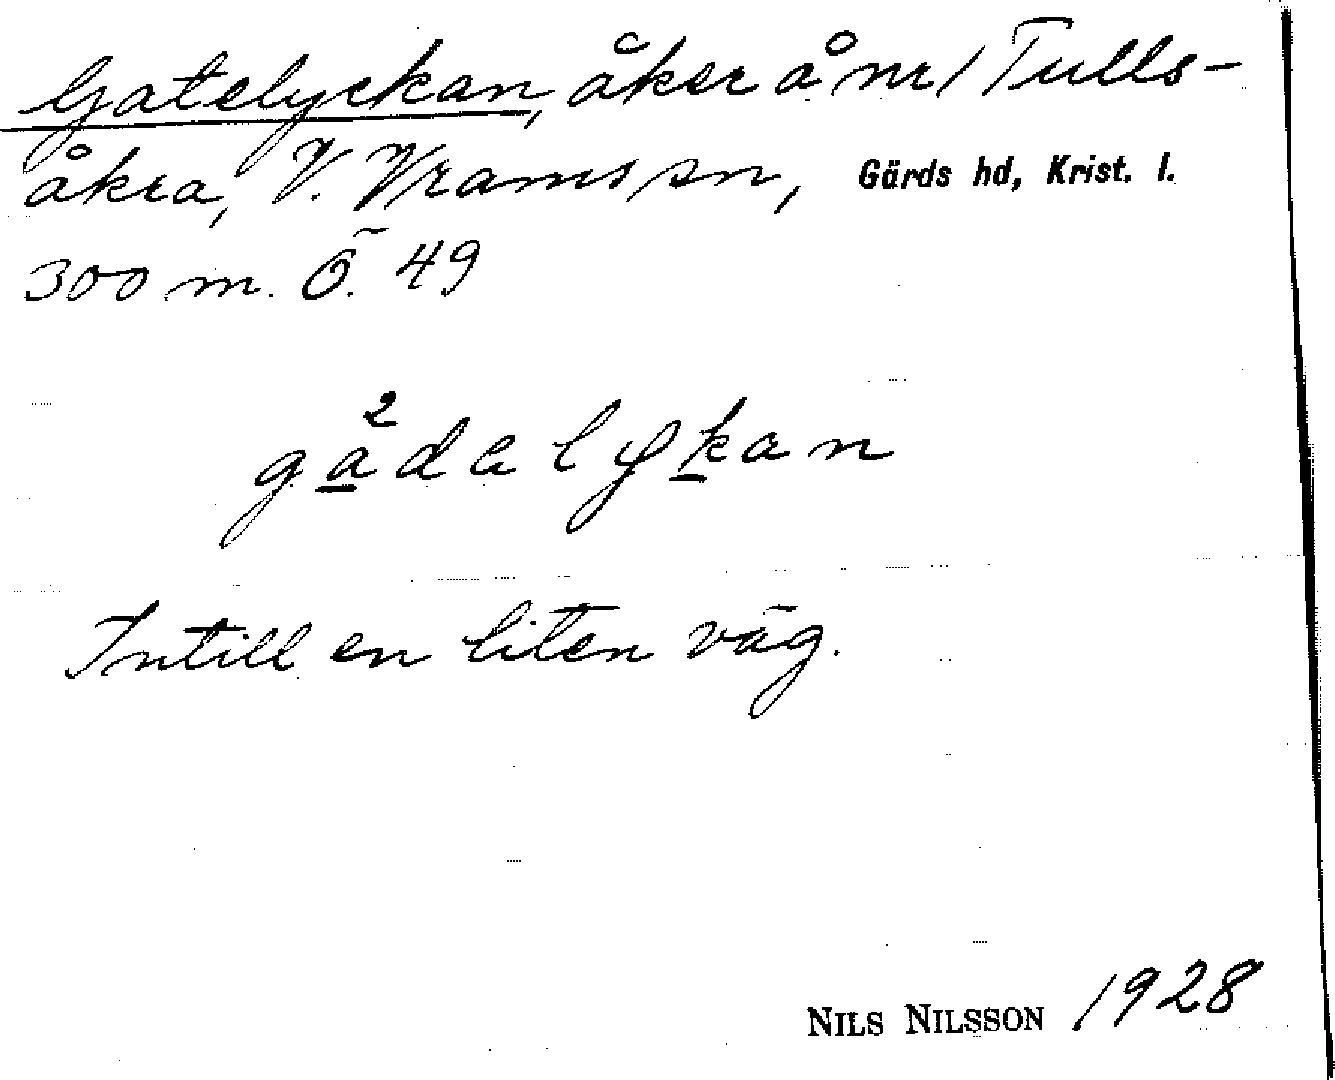 Gatelyckan, åker å nr 1 Tulls-
åkra, V. Vrams sn, Gärds hd, Krist. l.
300 m. Ö. 49
ga²dalykan
Intill en liten väg.
NILS NILSSON 1928